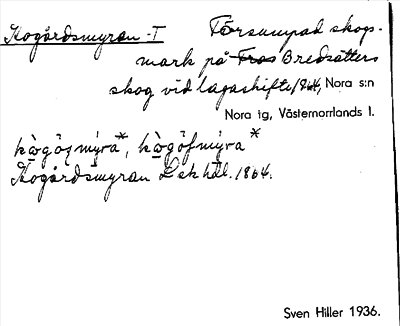 Kogårdsmyran -T Försumpad skogs-
mark på Fros Bredsätters
skog vid lagaskifte 1864, Nora s:n
Nora tg, Västernorrlands l.
kògög mýra*, kògöfmýra*
Kogårdsmyran Lskhdl. 1864.
Sven Hiller 1936.